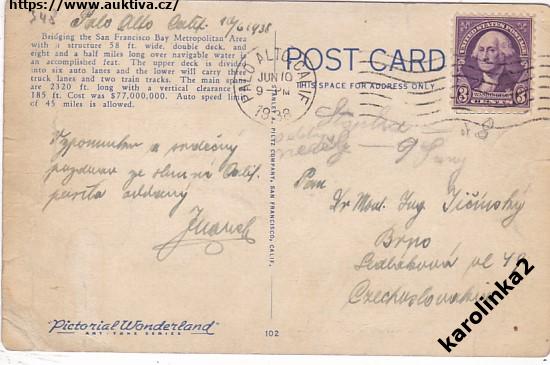 https://www.auktiva.cz/
Palo Alto Calif. 10/6 1938
Bridging the San Francisco Bay Metropolitan Area
with a structure 58 ft. wide, double deck, and
eight and a half miles long over navigable water
an accomplished feat. The upper deck is divided
into six auto lanes and the lower will carry three
truck lanes and two train tracks. The main spans
are 2320 ft. long with a vertical clearance of
185 ft. Cost was $77,000,000. Auto speed limit
of 45 miles is allowed.
POST CARD
THIS SPACE FOR ADDRESS ONLY
PALO ALTO, CALIF.
JUN 10
9 PM
1938
UNITED STATES POSTAGE
3 3
Vzpomínku a srdečný
pozdrav ze slunné Calif.
oddaný
STANLEY A. PILTZ CO., SAN FRANCISCO, CALIF.
neděle 9
Pan
Ing. Tičínský
Brno
Sedlákova ul 49
Czechoslovakia
Pictorial Wonderland
ART-TONE SERIES
102
karolinka2